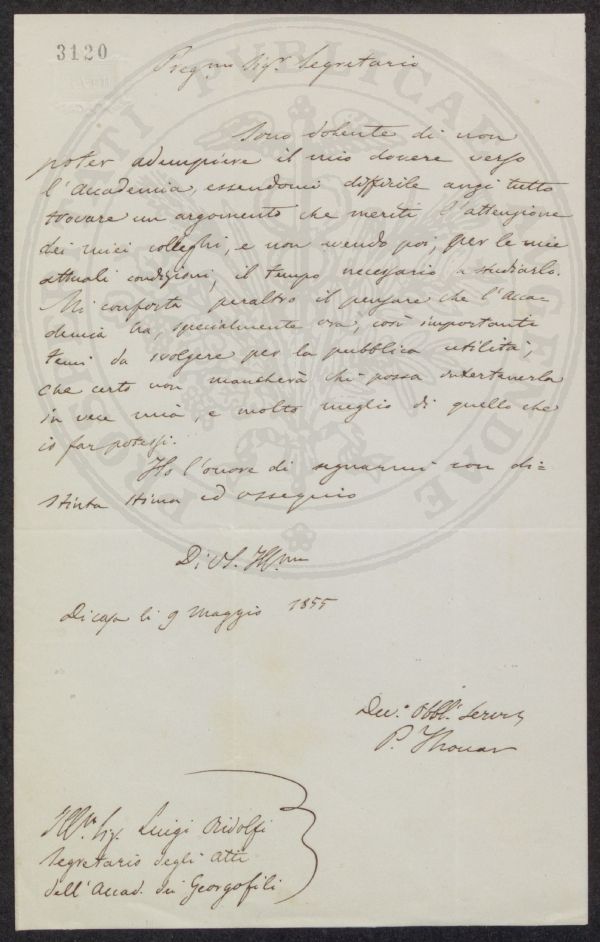 3120
Preg.mo Sig.r Segretario
Sono dolente di non
poter adempiere il mio dovere verso
l'Accademia, essendomi difficile anzi tutto
trovare un argomento che meriti l'attenzione
dei miei colleghi, e non avendo poi, per le mie
attuali condizioni, il tempo necessario a studiarlo.
Mi conforta peraltro il pensare che l'Acca-
demia ha, specialmente ora, così importanti
temi da svolgere per la pubblica utilità,
che certo non mancherà chi possa intertenerla
in vece mia, e molto meglio di quello che
io far potessi.
Ho l'onore di segnarmi con di=
stinta stima ed ossequio
Di VS. Ill.ma
Di casa li 9 Maggio 1855
Dev.o Obbl.o Serv.
P. Thouar
Ill.mo Sig. Luigi Ridolfi
Segretario degli Atti
dell'Accad. dei Georgofili
PROSPERITATI PUBLICAE AUGENDAE